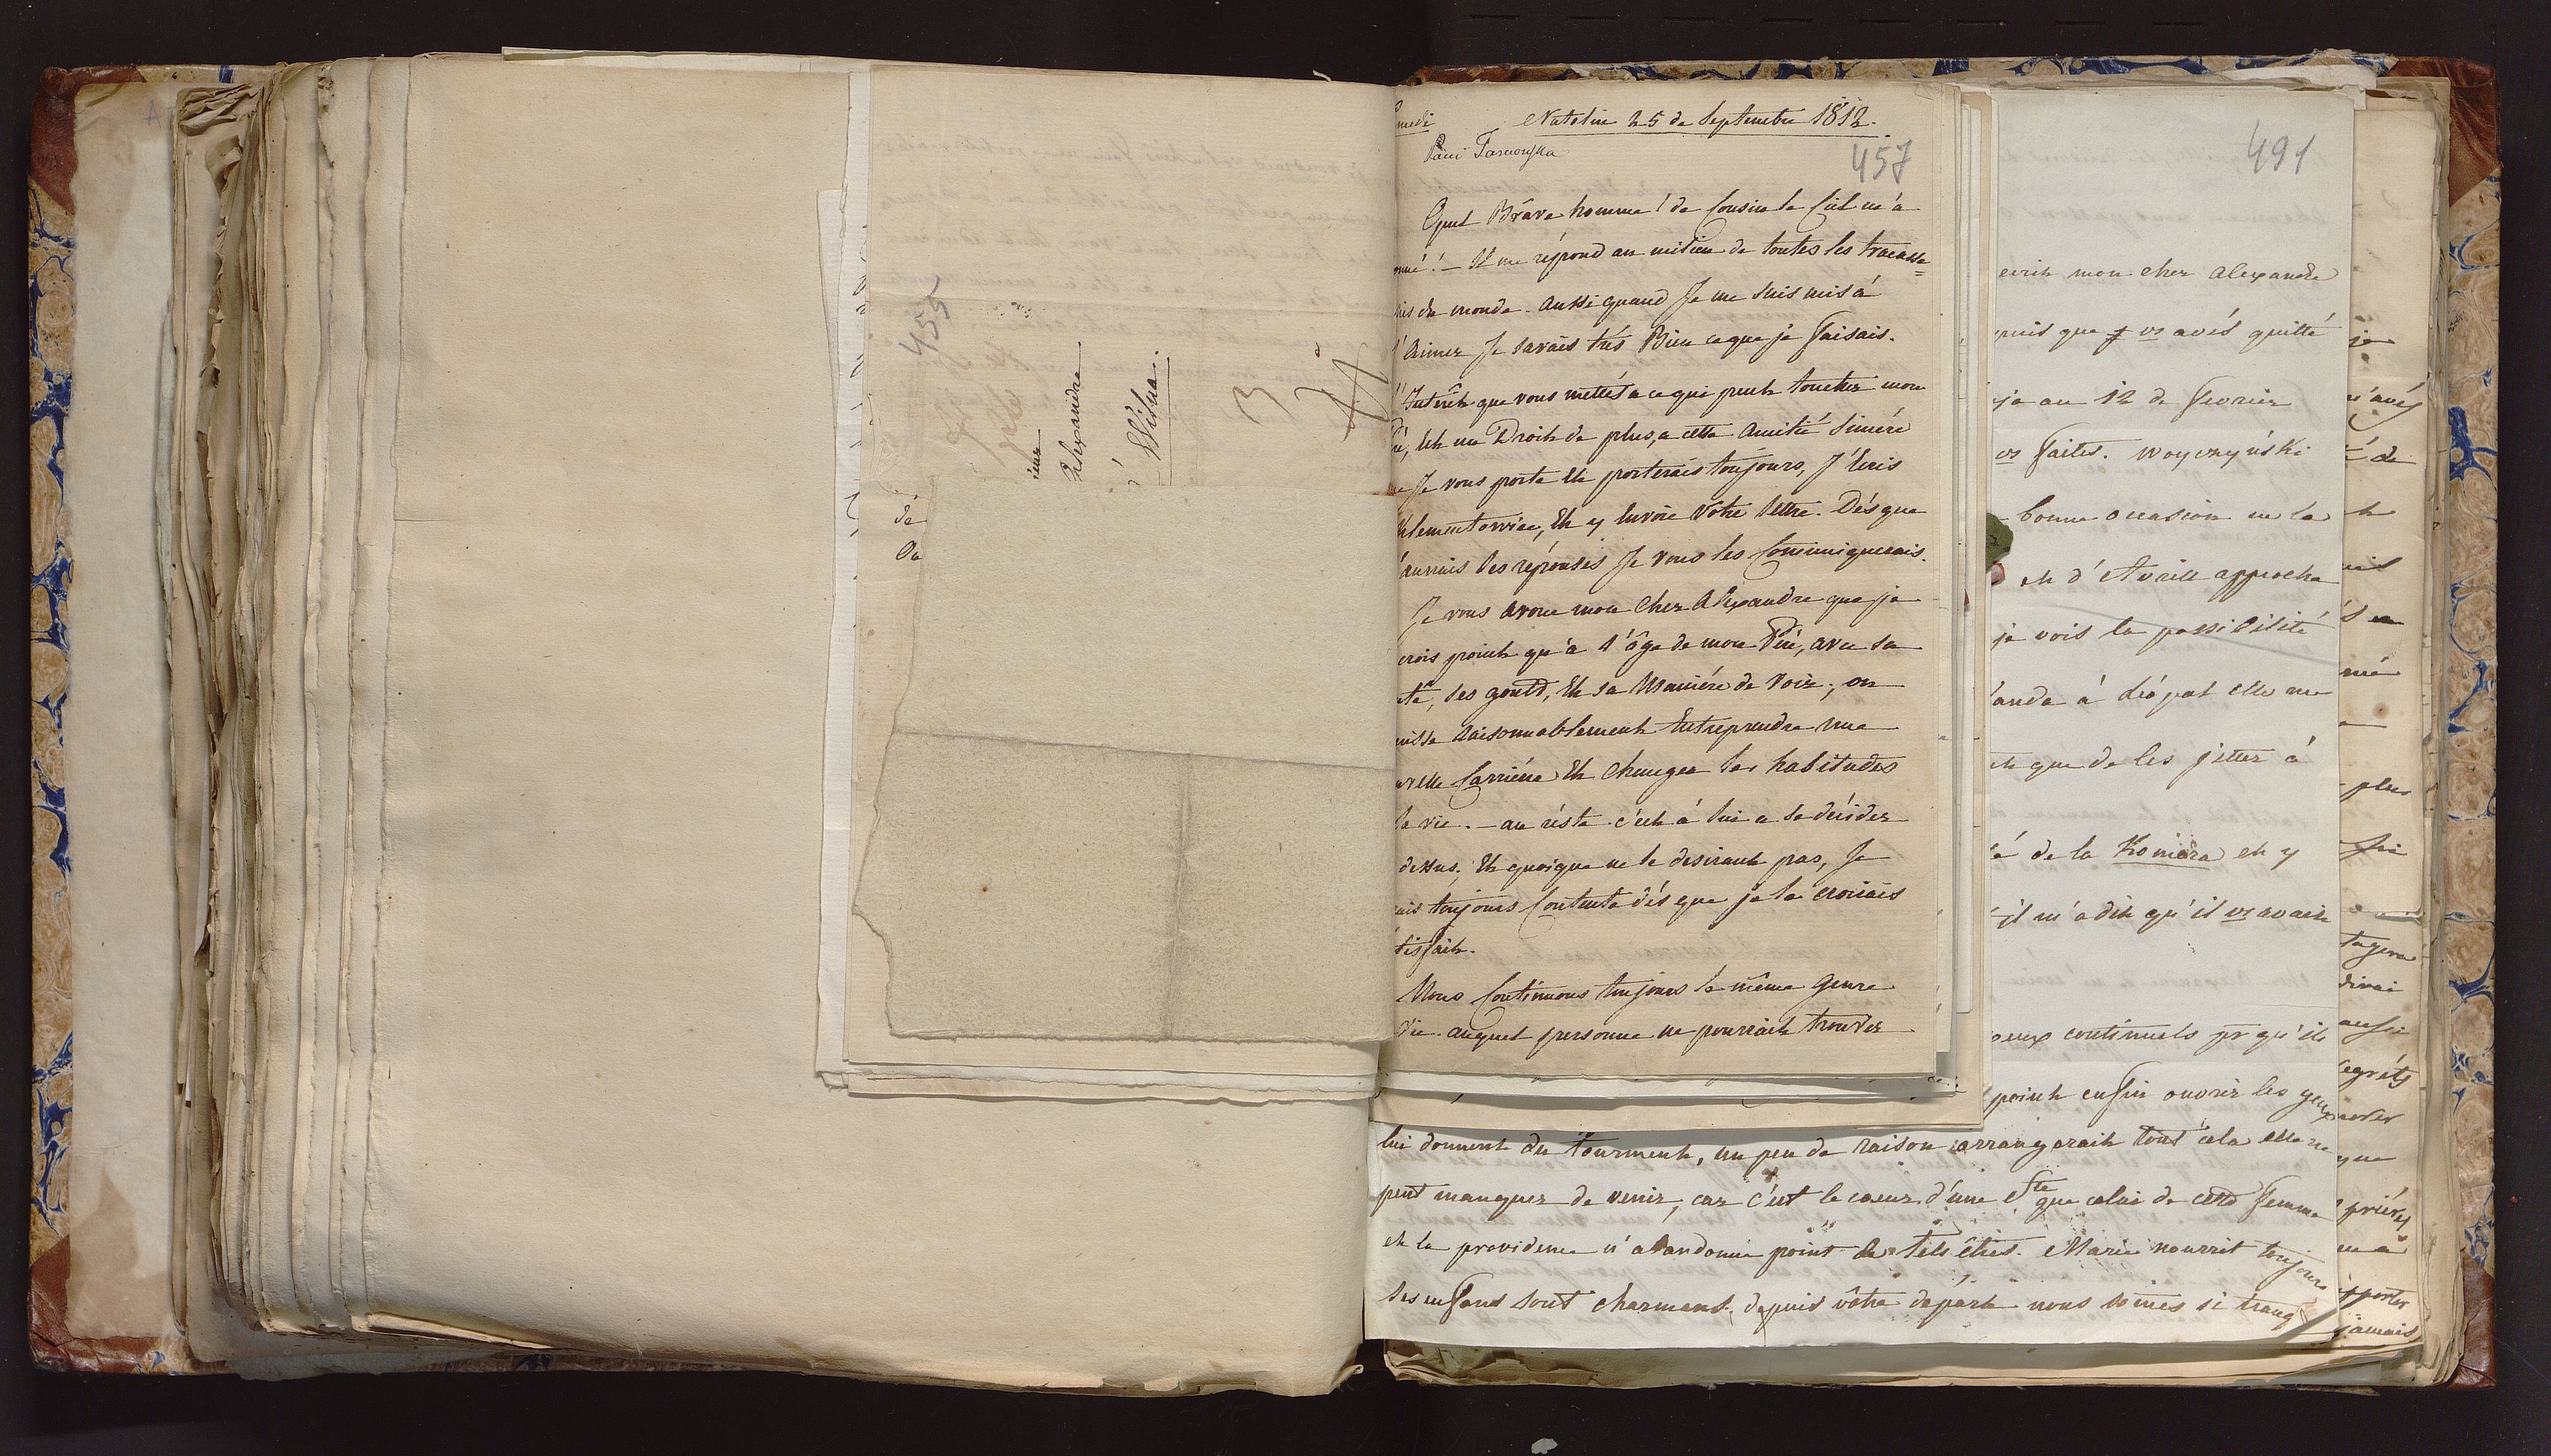 455
Alexandre
à
Wilna.
3
de
Ou
medi Natolin 25 de Septembre 1812.
Pani Tarnowska
457
Quel Brâve homme! de Cousin le Ciel m'a
onné! – Il me répond au milieu de toutes les tracasse=
ries du monde. Aussi quand Je me suis mis à
l'Aimer Je savais trés Bien ce que je faisais.
L'Intérêt que vous mettés a ce qui peut toucher mon
Pére, Est un Droit de plus, a cette Amitié Sincére
que Je vous porte Et porterais toujours, J'Ecris
Klementowice, Et y Envoie Votre lettre. Dés que
J'aurrais des réponses Je vous les Communiquerais.
Je vous avoue mon Cher Alexandre que je
crois point qu'à l'âge de mon Pére, avec sa
nté, ses goûts, Et sa Maniére de Voir; on
uisse Raisonnablement Entreprendre une
uvelle Carriére Et Changer les habitudes
la vie. – au réste c'est à lui a se décider
dessus; Et quoique ne le desirant pas, Je
rais toujours Contente dés que je le croirais
tisfait.
Nous Continuons toujours le même Genre
Vie auquel personne ne pourrait trouver
491
ecrit mon cher Alexandre
puis que vs avés quitté
ja au 12 de Fevrier
vs faites. Woyczyński
bonne occasion en la
et d'Avrill approche
je vois la possibilité
ande à dépot elle me
et que de les jetter à
é de la Komora et y
il m'a dit qu'il vs avait
oeux continuels pr qu'il
point enfin ouvrir les yeux
lui donnent du tourment, un peu de raison arrangerait tout cela elle ne
peut manquer de venir, car c'est le coeur d'une Ste que celui de cette femme
et la providence n'abandonne point de tels êtres. Marie nourrit toujours
ses enfans sont charmans, depuis vôtre départ nous somes si tranq
je
n'avés
té de
plus
tagera
dirai
aussi
regréts
que
priéres
pporter
jamais